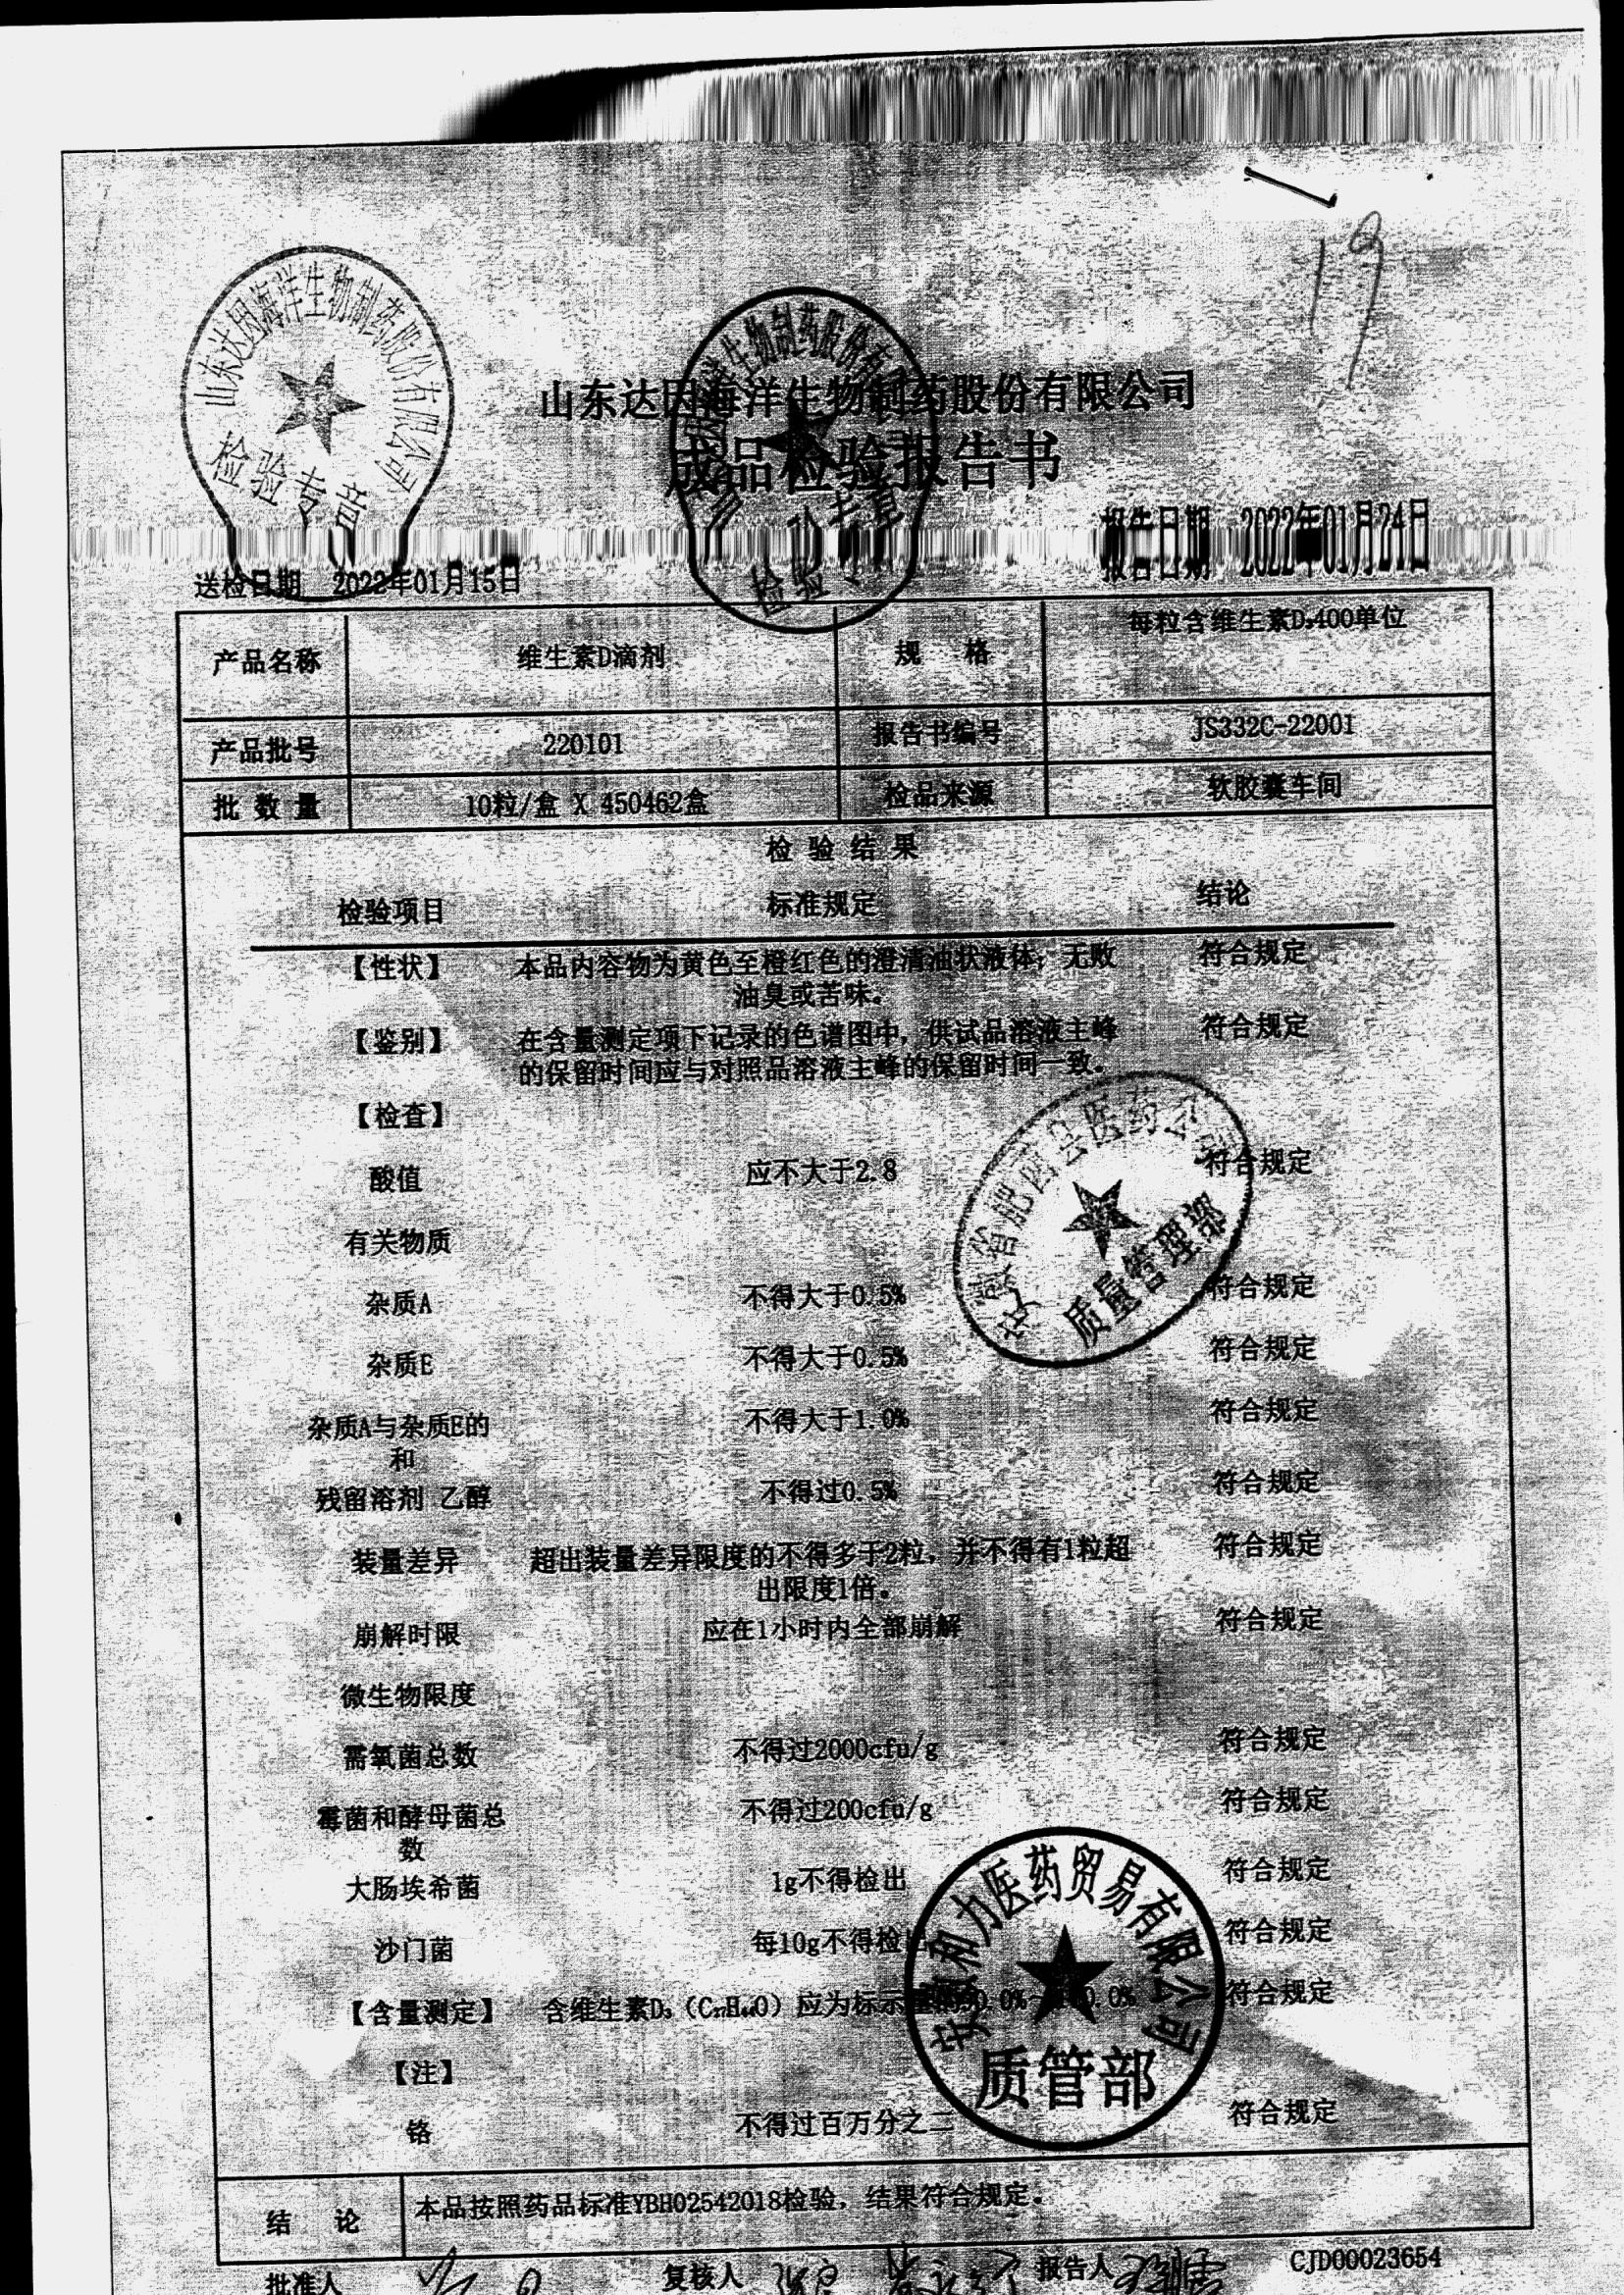 19
山东达因海洋生物制药股份有限公司
检验专
山东达因海洋生物制药股份有限公司
成品检验报告书
生物制药股份有
检验专
送检日期 2022年01月15日
报告日期 2022年01月24日
产品名称 维生素D滴剂 规 格 每粒含维生素D₃400单位
产品批号 220101 报告书编号 JS332C-22001
批 数 量 10粒/盒 X 450462盒 检品来源 软胶囊车间
检 验 结 果
检验项目 标准规定 结论
【性状】 本品内容物为黄色至橙红色的澄清油状液体；无败 符合规定
油臭或苦味。
【鉴别】 在含量测定项下记录的色谱图中，供试品溶液主峰 符合规定
的保留时间应与对照品溶液主峰的保留时间一致。
【检查】
酸值 应不大于2.8 符合规定
有关物质
杂质A 不得大于0.5% 符合规定
杂质E 不得大于0.5% 符合规定
杂质A与杂质E的 不得大于1.0% 符合规定
和
残留溶剂 乙醇 不得过0.5% 符合规定
装量差异 超出装量差异限度的不得多于2粒，并不得有1粒超 符合规定
出限度1倍。
崩解时限 应在1小时内全部崩解 符合规定
微生物限度
需氧菌总数 不得过2000cfu/g 符合规定
霉菌和酵母菌总 不得过200cfu/g 符合规定
数
大肠埃希菌 1g不得检出 符合规定
沙门菌 每10g不得检出 符合规定
【含量测定】 含维生素D₃（C₂₇H₄₄O）应为标示量的 .0%～ .0% 符合规定
【注】
铬 不得过百万分之二 符合规定
安徽省肥西县医药公司
质量管理部
安徽和力医药贸易有限公司
质管部
结 论 本品按照药品标准YBH02542018检验，结果符合规定。
批准人 复核人 报告人 CJD00023654